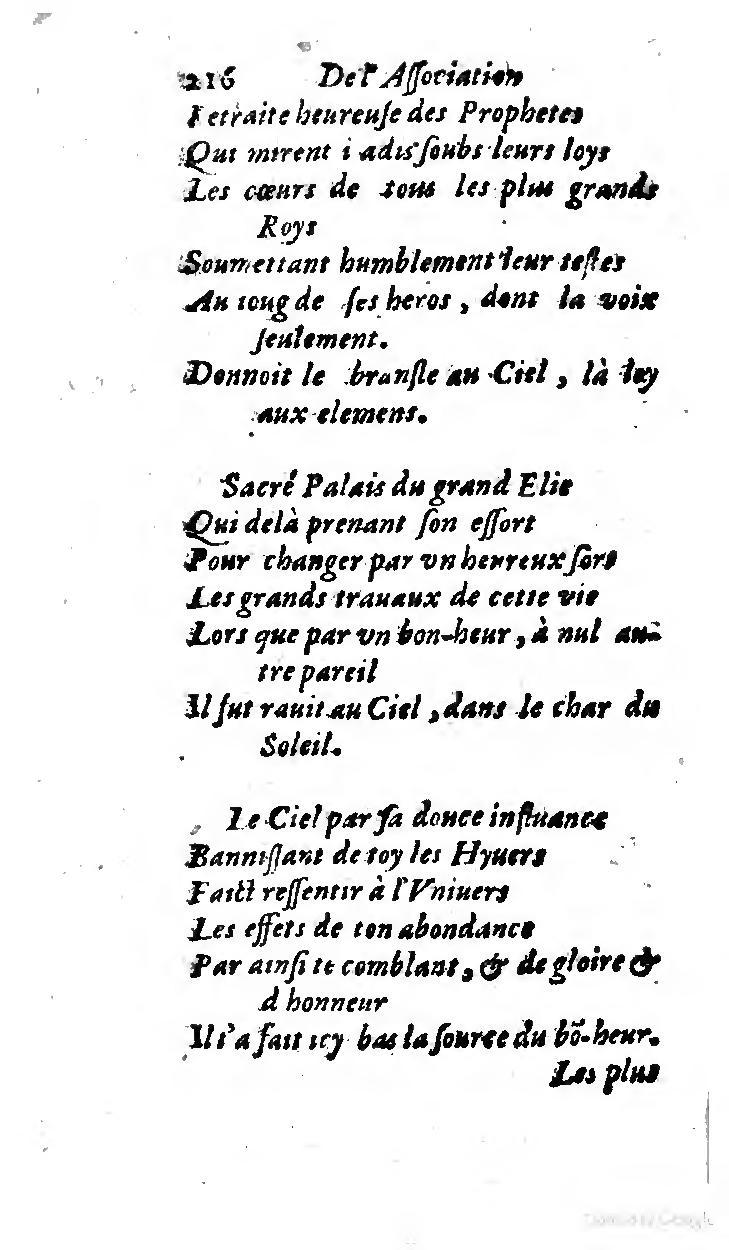 216 De l'Aſſociation
Retraite heureuſe des Prophetes
Qui mirent iadis ſoubs leurs loys
Les cœurs de tous les plus grands
Roys
Soumettant humblement leur teſtes
Au ioug de ſes heros, dont la voix
ſeulement.
Donnoit le branſle au Ciel, là loy
aux elemens.
Sacré Palais du grand Elie
Qui delà prenant ſon eſſort
Pour changer par vn heureux ſort
Les grands trauaux de cette vie
Lors que par vn bon-heur, à nul au-
tre pareil
Il fut rauit au Ciel, dans le char du
Soleil.
Le Ciel par ſa douce influance
Banniſſant de toy les Hyuers
Faict reſſentir à l'Vniuers
Les effets de ton abondance
Par ainſi te comblant, & de gloire &
d honneur
Il t'a fait icy bas la ſource du bõ-heur.
Les plus